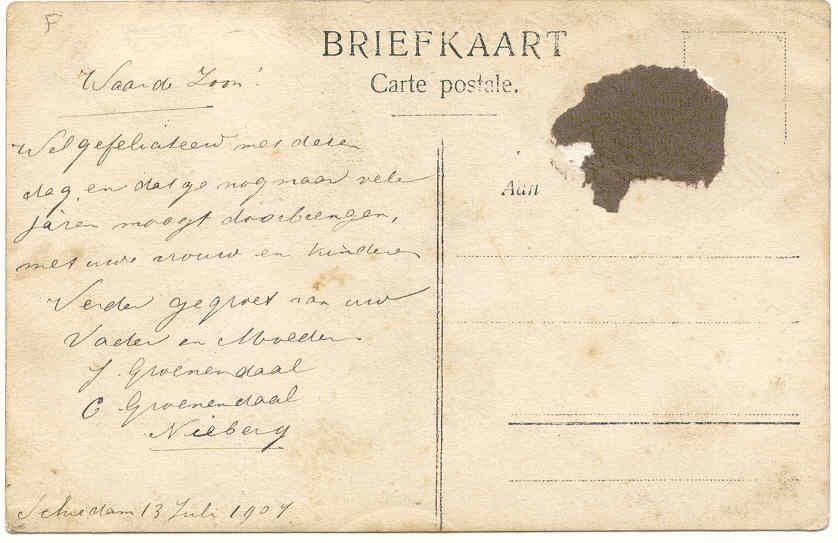 F
BRIEFKAART
Carte postale.
Waarde Zoon!
Wel gefeliciteerd met dezen
dag, en dat ge nog naar vele
jaren moogt doorbrengen,
met uwe vrouw en kinderen
Verder gegroet van uw
Vader en Moeder.
J. Groenendaal
C Groenendaal
Nieberg
Schiedam 13 Juli 1907
Aan